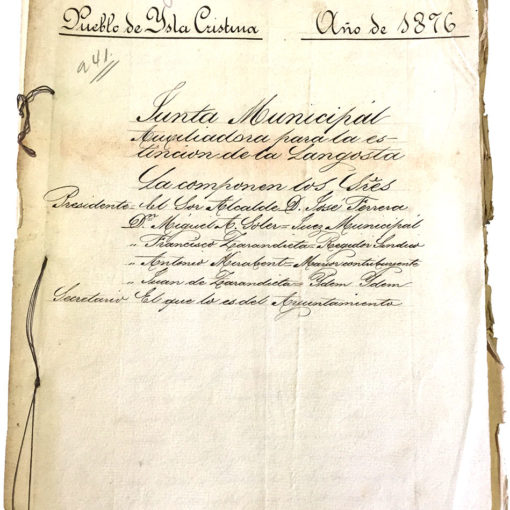 Pueblo de Ysla Cristina Año de 1876
a 41.
Junta Municipál
Auxiliadora para la es-
tincion de la Langosta
La componen los Sres
Presidente = el Sor Alcalde D. José Ferrera
Dn Miguel A. Soler = Juez Municipál
" Francisco Zarandieta = Regidor Sindico
" Antonio Mirabent = Mayor contribuyente
" Juan de Zarandieta = Ydem Ydem
Secretario El que lo es del Ayuntamiento